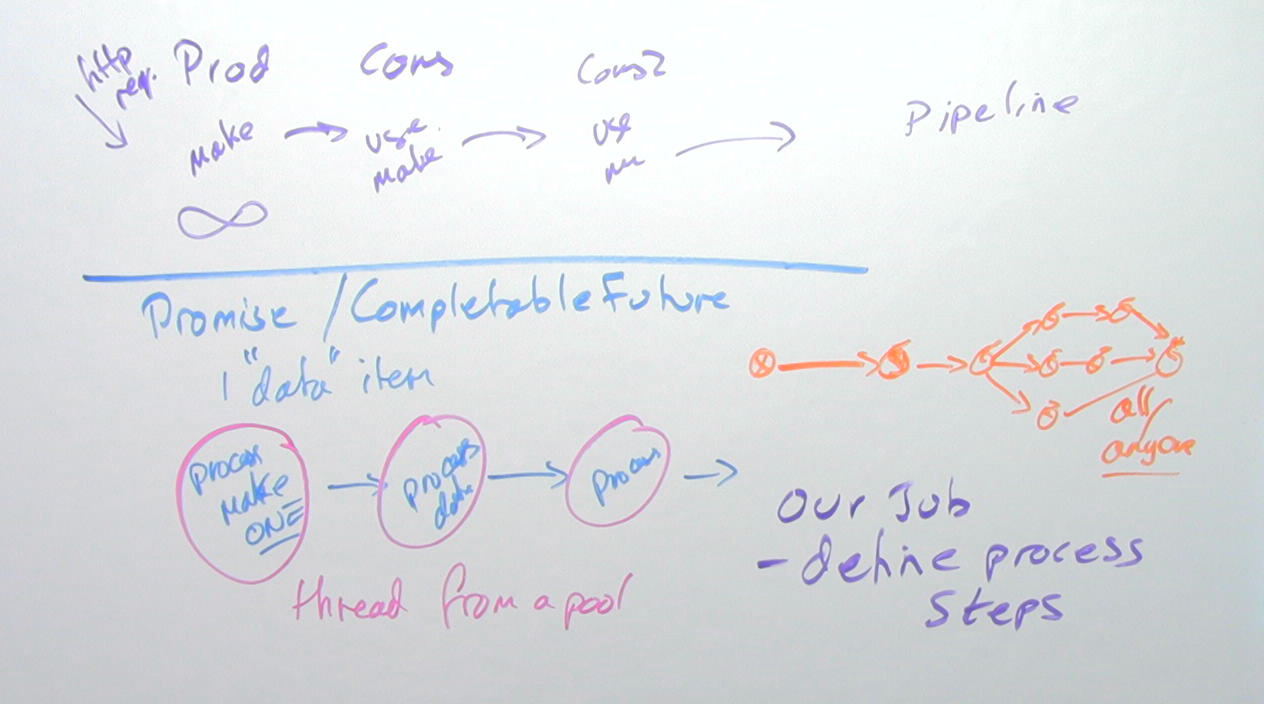 http req.
Prod
Cons
Cons2
make
use
make
use
Pipeline
∞
Promise / CompletableFuture
1 "data" item
process
make
ONE
process
data
process
all /
anyone
thread from a pool
Our Job
- define process
steps